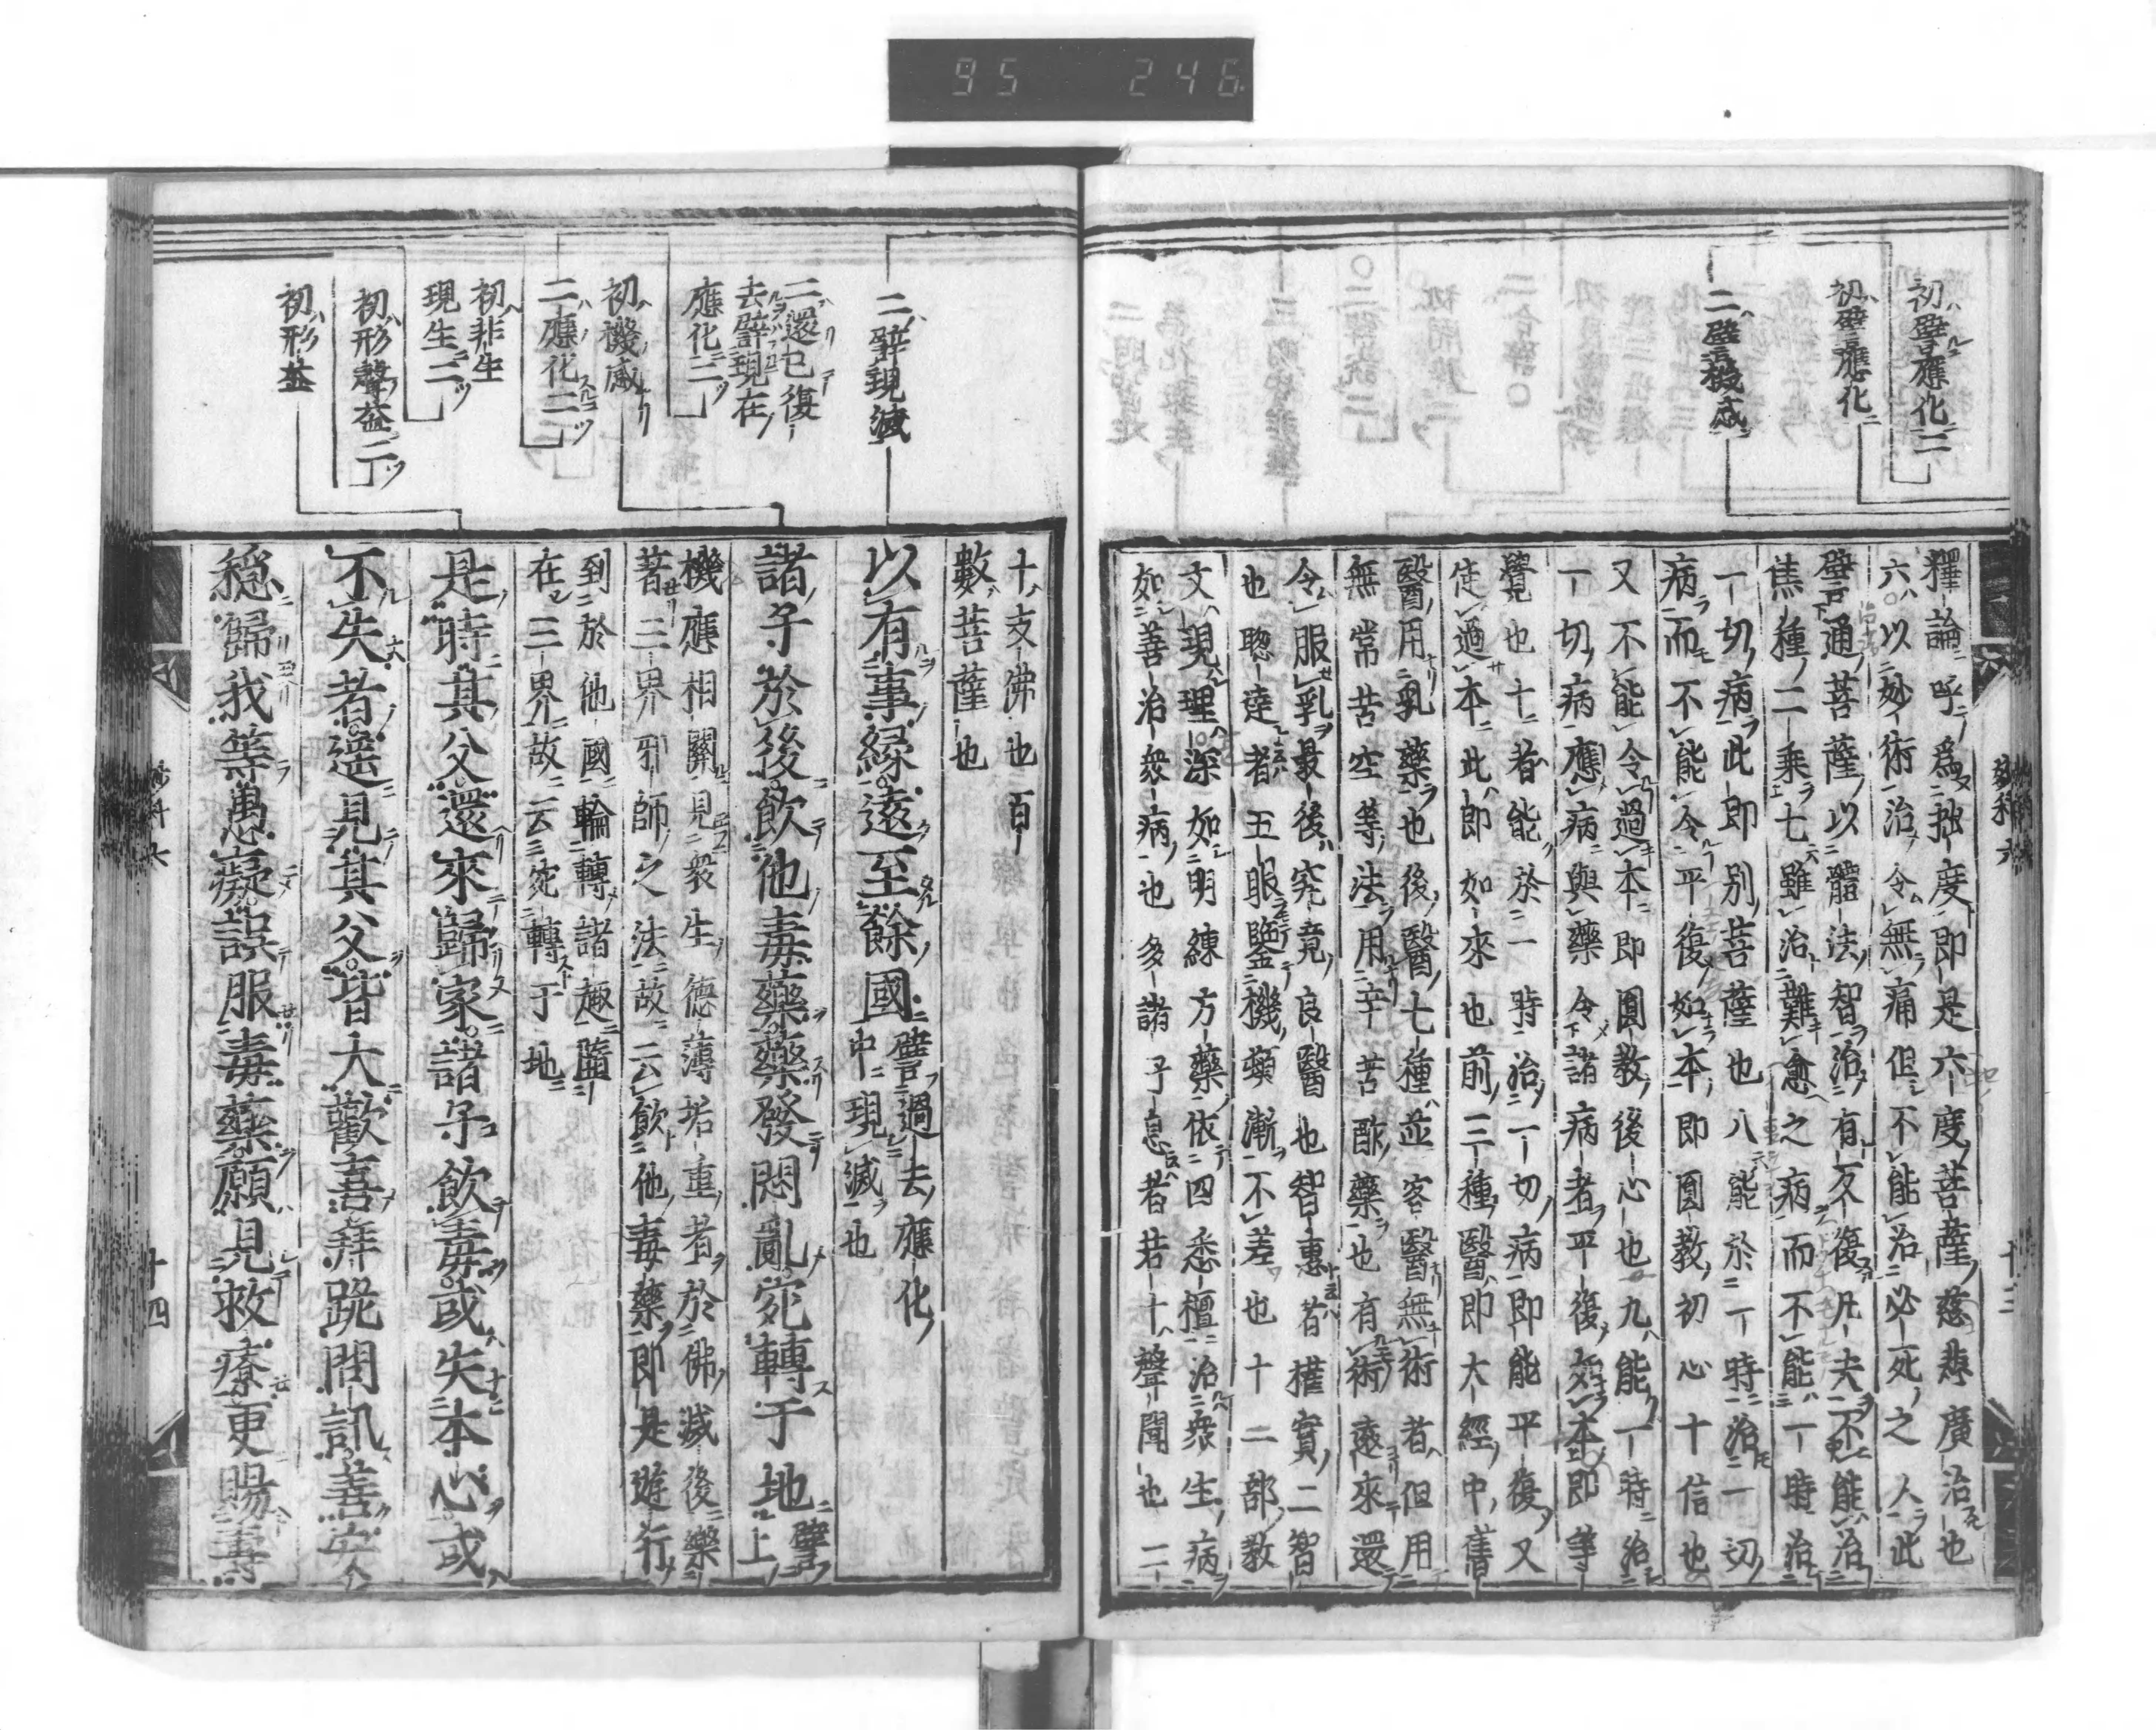 95 246
初譬應化二
初譬應化
二譬機感
釋論呼爲拙度即是六度菩薩慈悲廣治也
六以妙術治令無痛但不能治必死之人此
譬通菩薩以體法智治有反復凡夫不能治
焦種二乘七雖治難愈之病而不能一時治
一切病此即別菩薩也八能於一時治一切
病而不能令平復如本即圓教初心十信也
又不能令過本即圓教後心也九能一時治
一切病應病與藥令諸病者平復如本即等
覺也十者能於一時治一切病即能平復又
使過本此即如來也前三種醫即大經中舊
醫用乳藥也後醫七種並客醫無術者但用
無常苦空等法用辛苦酢藥也有術遠來還
令服乳最後究竟良醫也智惠者權實二智
也聡達者五眼鑒機頓漸不差也十二部教
文現理深如明練方藥依四悉檀治衆生病
如善治衆病也多諸子息者若十聲聞也二
十三
二譬現滅
二還已復
去譬現在
應化二
初機感
二應化二
初非生
現生二
初形聲益二
初形益
十支佛也百
數菩薩也
以有事縁遠至餘國
譬過去應化
中現滅也
諸子於後飲他毒藥藥發悶亂宛轉于地
譬上
機應相關見衆生德薄垢重者於佛滅後樂
著三界邪師之法故云飲他毒藥即是遊行
到於他國輪轉諸趣墮
在三界故云宛轉于地
是時其父還來歸家諸子飲毒或失本心或
不失者遥見其父皆大歡喜拜跪問訊善安
穏歸我等愚癡誤服毒藥願見救療更賜壽
十四